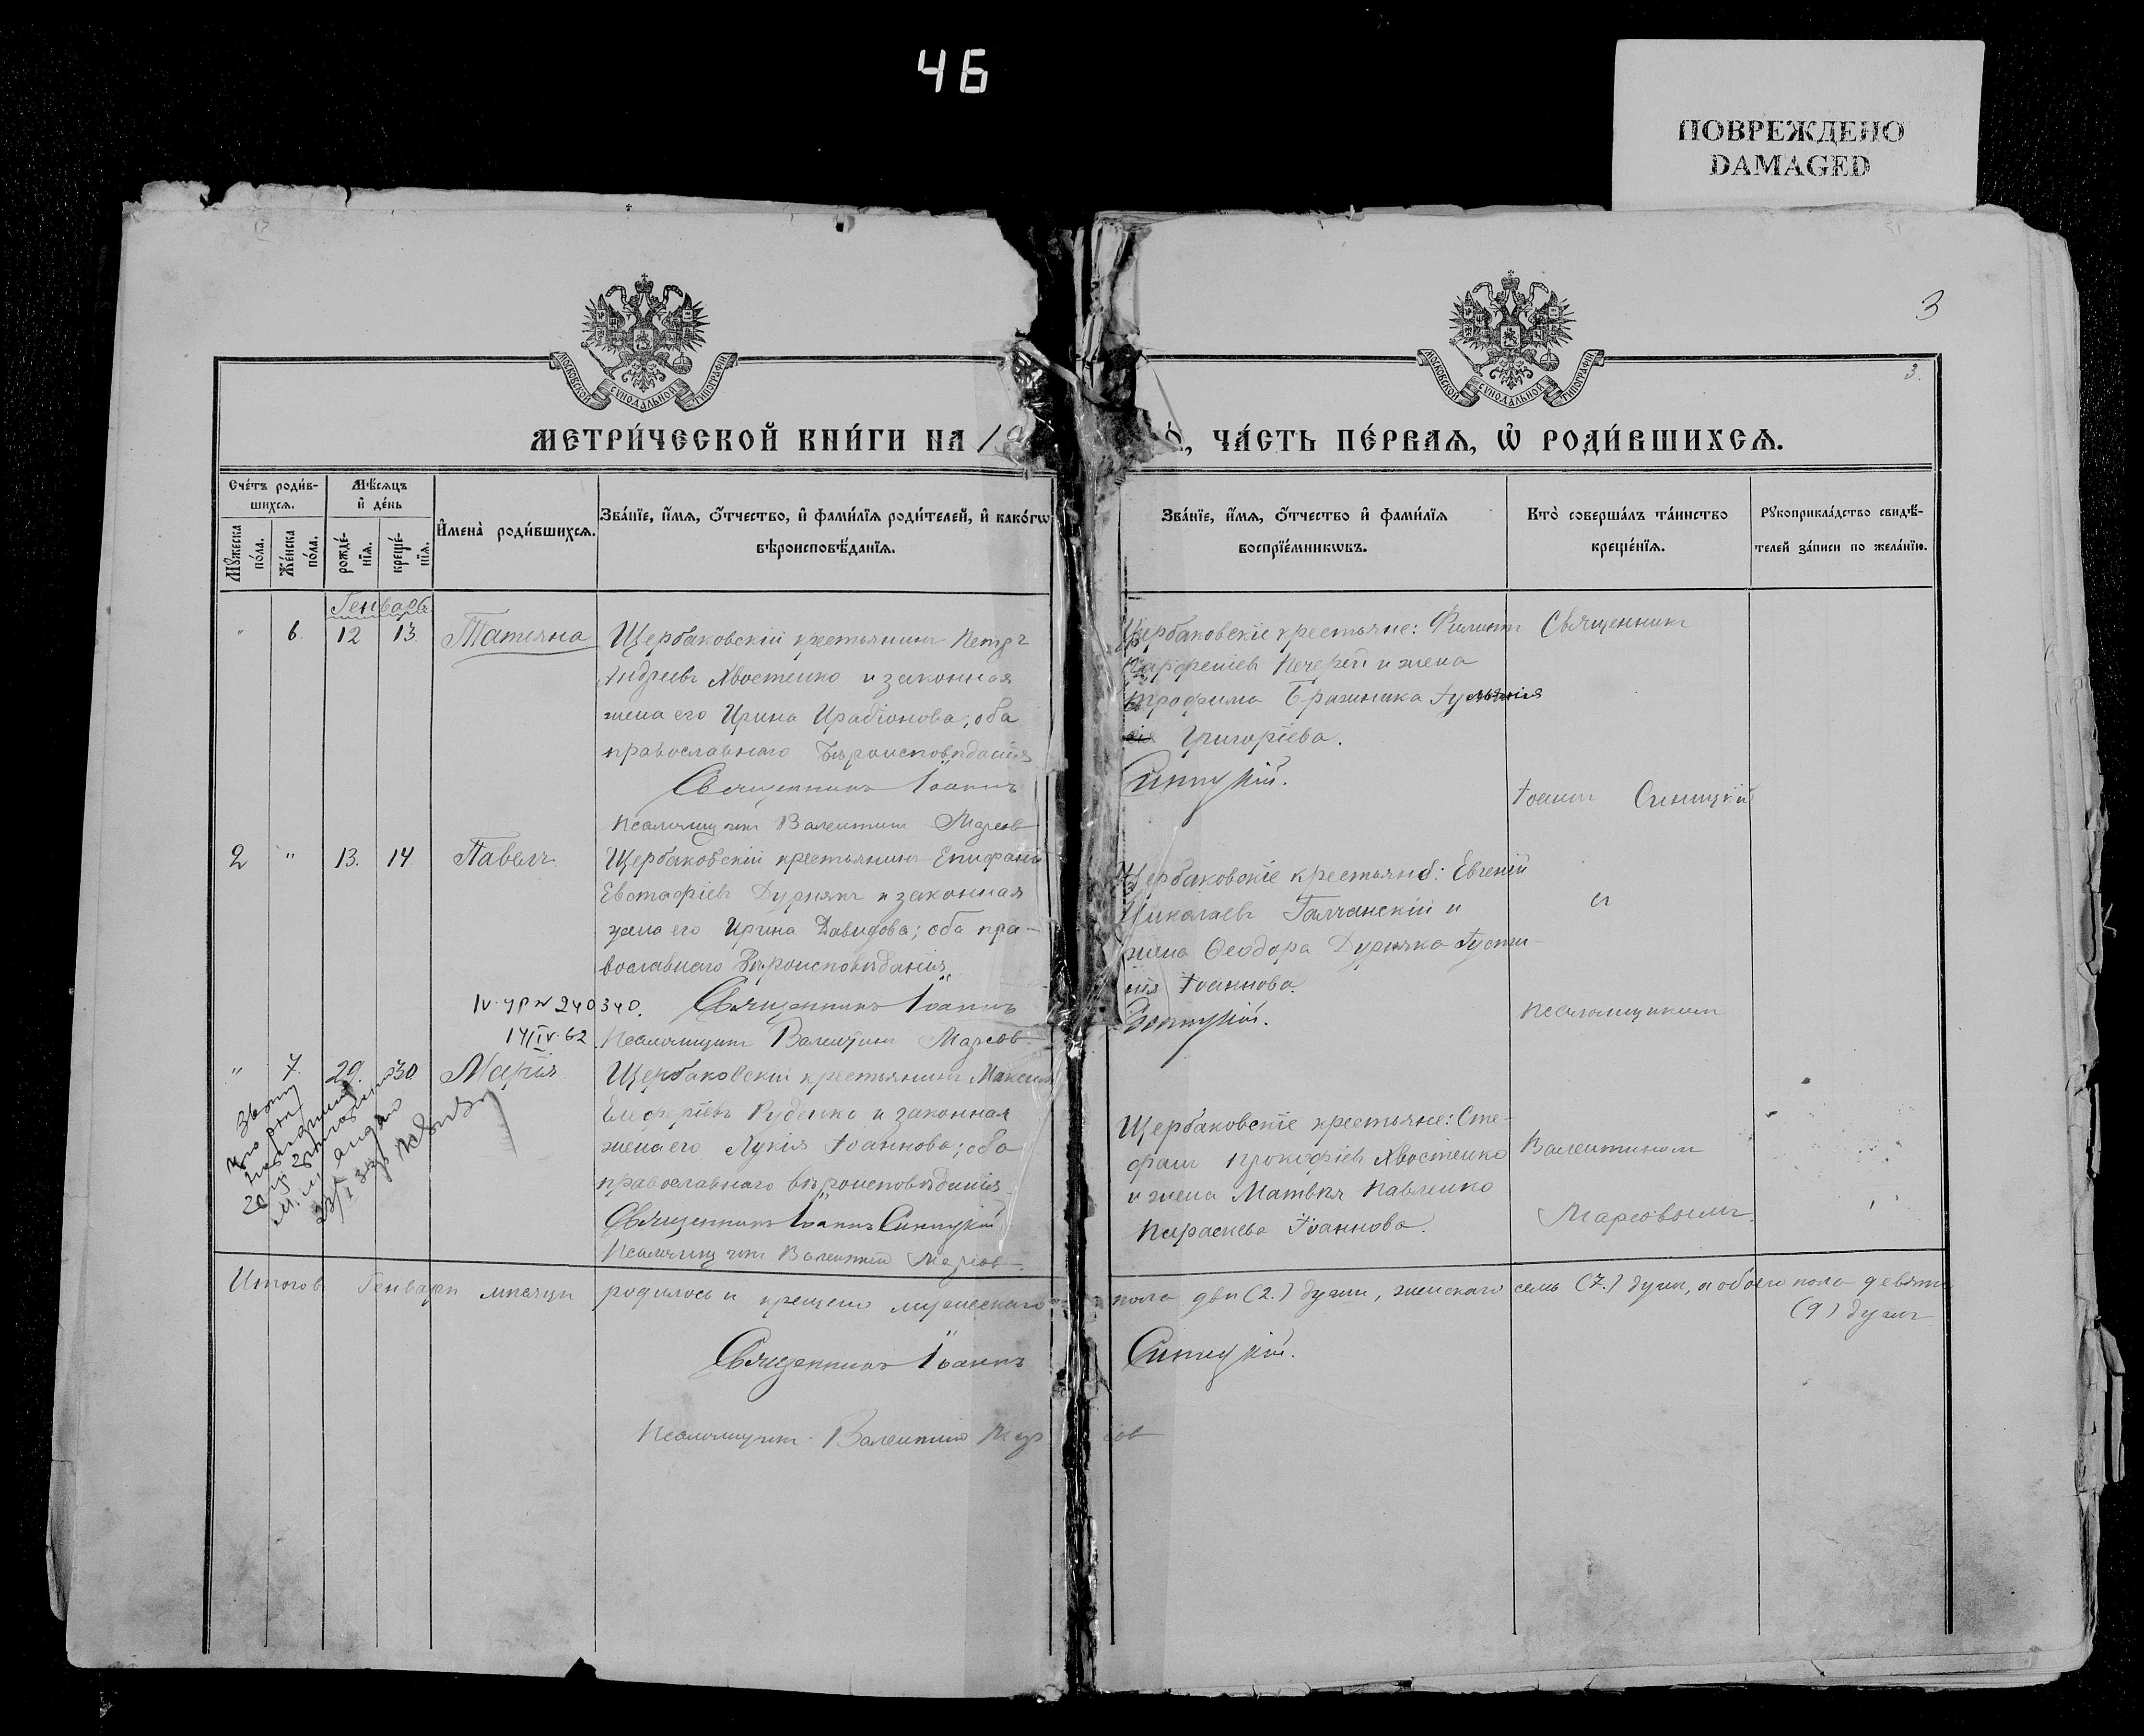 46
ПОВРЕЖДЕНО
DAMAGED
3
МОСКОВСКОЙ СѴНОДАЛЬНОЙ ТИПОГРАФІИ
МОСКОВСКОЙ СѴНОДАЛЬНОЙ ТИПОГРАФІИ
3.
МЕТРИ́ЧЕСКОЙ КНИ́ГИ НА 19
, ЧА́СТЬ ПЕ́РВАЯ, Ѡ҆ РОДИ́ВШИХСЯ.
Сче́тъ роди́в-
шихся.
Мѣ́сяцъ
и҆ де́нь
Мꙋ́жеска
по́ла.
Же́нска
по́ла.
рожде́-
нїя.
креще́-
нїя.
И҆мена̀ роди́вшихся.
Зва́нїе, и҆́мя, ѻ҆́тчество, и҆ фами́лїя роди́телей, и҆ како́гѡ
вѣроисповѣ́данїя.
Зва́нїе, и҆́мя, ѻ҆́тчество и҆ фами́лїя
воспрїе́мникѡвъ.
Кто̀ соверша́лъ та́инство
креще́нїя.
Рꙋкоприкла́дство свидѣ́-
телей за́писи по жела́нїю.
Генварь
" 6. 12 13. Татіяна
Щербаковскій крестьянинъ Петръ
Андреевъ Хвостенко и законная
жена его Ирина Иродіонова; оба
православнаго вѣроисповѣданія
Священникъ Іоаннъ
Псаломщикъ Валентинъ
Щербаковскіе крестьяне: Филиппъ
и жена
Трофима
Григоріева.
Синицкій.
Священникъ
Іоаннъ Синицкій
2 " 13. 14 Павелъ
Щербаковскій крестьянинъ Епифаній
Евстафіевъ Дурнякъ и законная
жена его Ирина Давидова; оба пра-
вославнаго вѣроисповѣданія
Священникъ Іоаннъ
Псаломщикъ Валентинъ
240 340.
14/IV.62
Щербаковскіе крестьяне: Евгеній
Николаевъ Галчанскій и
жена Ѳеодора Дурняка Іусти-
нія Іоаннова.
Синицкій.
съ
Псаломщикомъ
" 7. 29. 30 Марія
Щербаковскій крестьянинъ Максимъ
Елеферіевъ Руденко и законная
жена его Лукія Іоаннова; оба
православнаго вѣроисповѣданія
Священникъ Іоаннъ Синицкій
Псаломщикъ Валентинъ
Щербаковскіе крестьяне: Сте-
фанъ Прокофіевъ Хвостенко
и жена Матвѣя Павленко
Параскева Іоаннова.
Валентиномъ
Итого въ Генварѣ мѣсяцѣ родилось и крещено мужескаго пола двѣ (2.) души, женскаго семь (7.) душъ, а обоего пола девять
(9) душъ
Священникъ Іоаннъ Синицкій.
Псаломщикъ Валентинъ